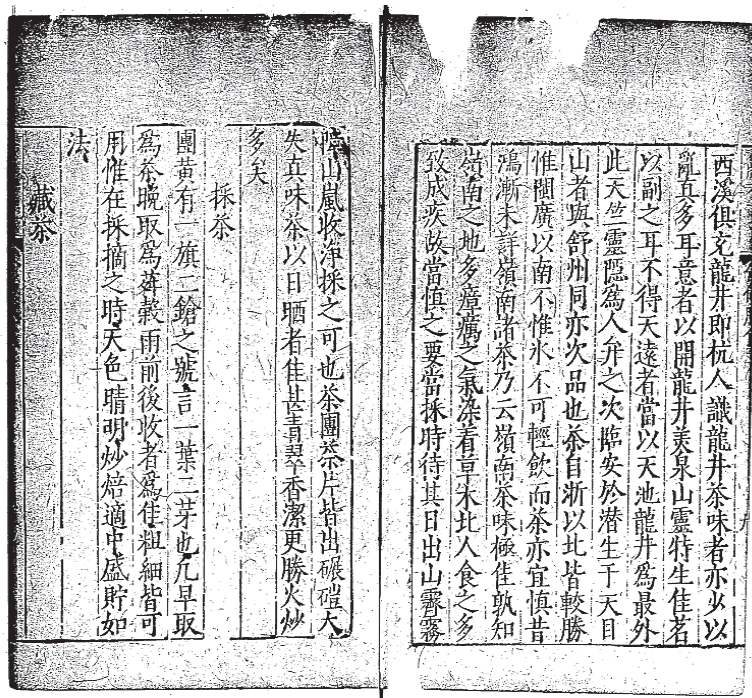 西溪俱充龍井即杭人識龍井茶味者亦少以
亂真多耳意者以開龍井美泉山靈特生佳茗
以副之耳不得天遠者當以天池龍井爲最外
此天竺靈隱爲人弁之次臨安於潜生于天目
山者與舒州同亦次品也茶自浙以北皆較勝
惟閩廣以南不惟水不可輕飲而茶亦宜慎昔
鴻漸未詳嶺南諸茶乃云嶺南茶味極佳孰知
嶺南之地多瘴癘之氣染着草木北人食之多
致成疾故當慎之要當採時待其日出山霽霧
嶂山嵐收淨採之可也茶團茶片皆出碾磑大
失真味茶以日晒者佳甚青翠香潔更勝火炒
多矣
採茶
團黃有一旗二鎗之號言一葉二芽也凡早取
爲茶晚取爲荈穀雨前後收者爲佳粗細皆可
用惟在採摘之時天色晴明炒焙適中盛貯如
法
藏茶